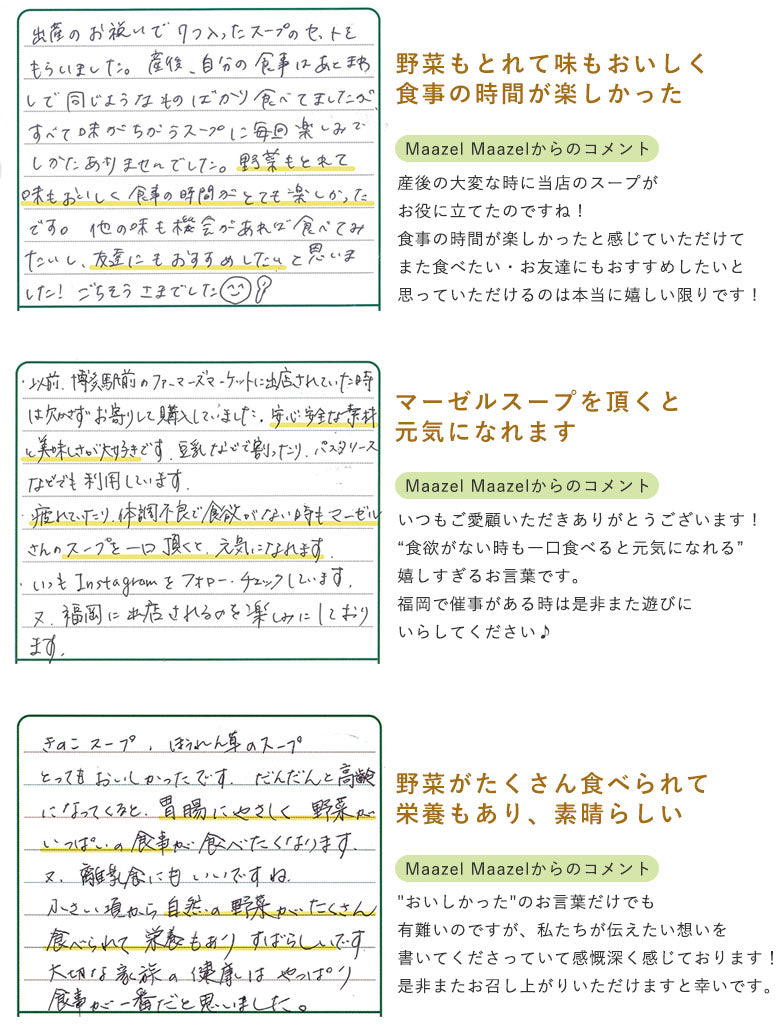 出産のお祝いで7つ入ったスープのセットを
もらいました。産後、自分の食事はあとまわ
しで同じようなものばかり食べてましたが、
すべて味がちがうスープに毎回楽しみで
しかたありませんでした。野菜もとれて
味もおいしく食事の時間がとても楽しかった
です。他の味も機会があれば食べてみ
たいし、友達にもおすすめしたいと思いま
した！ごちそうさまでした
野菜もとれて味もおいしく
食事の時間が楽しかった
Maazel Maazelからのコメント
産後の大変な時に当店のスープが
お役に立てたのですね！
食事の時間が楽しかったと感じていただけて
また食べたい・お友達にもおすすめしたいと
思っていただけるのは本当に嬉しい限りです！
・以前、博多駅前のファーマーズマーケットに出店されていた時
は欠かせずお寄りして購入していました。安心安全な素材
と美味しさが大好きです。豆乳などで割ったり、パスタソース
などでも利用しています。
・疲れていたり、体調不良で食欲がない時もマーゼル
さんのスープを一口頂くと、元気になれます。
・いつもInstagramをフォロー・チェックしています。
又、福岡に出店されるのを楽しみにしており
ます。
マーゼルスープを頂くと
元気になれます
Maazel Maazelからのコメント
いつもご愛顧いただきありがとうございます！
“食欲がない時も一口食べると元気になれる”
嬉しすぎるお言葉です。
福岡で催事がある時は是非また遊びに
いらしてください♪
きのこスープ、ほうれん草のスープ
とってもおいしかったです。だんだんと高齢
になってくると、胃腸にやさしく野菜が
いっぱいの食事が食べたくなります。
又、離乳食にもいいですね。
小さい頃から自然の野菜がたくさん
食べられて栄養もありすばらしいです
大切な家族の健康はやっぱり
食事が一番だと思いました。
野菜がたくさん食べられて
栄養もあり、素晴らしい
Maazel Maazelからのコメント
"おいしかった"のお言葉だけでも
有難いのですが、私たちが伝えたい想いを
書いてくださっていて感慨深く感じております！
是非またお召し上がりいただけますと幸いです。